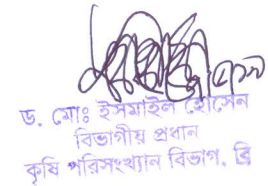 ড. মোঃ ইসমাইল হোসেন
বিভাগীয় প্রধান
কৃষি পরিসংখ্যান বিভাগ, ব্রি